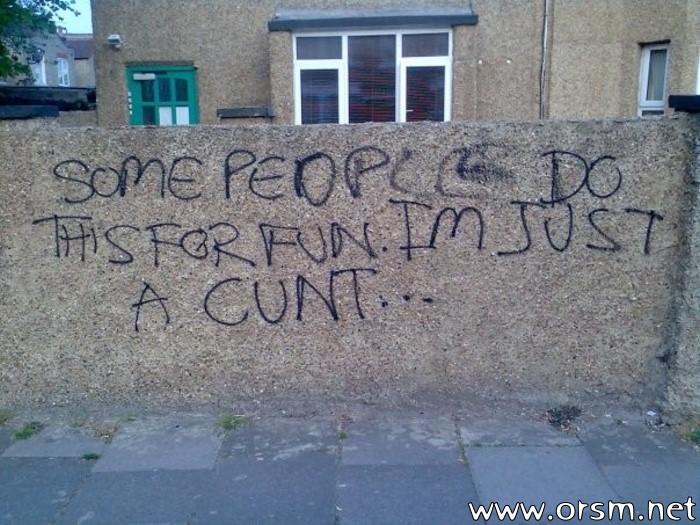 SOME PEOPLE DO
THIS FOR FUN. IM JUST
A CUNT...
www.orsm.net